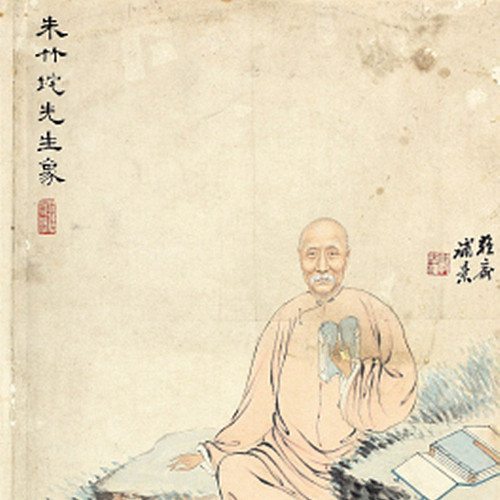 朱竹垞先生象
補景